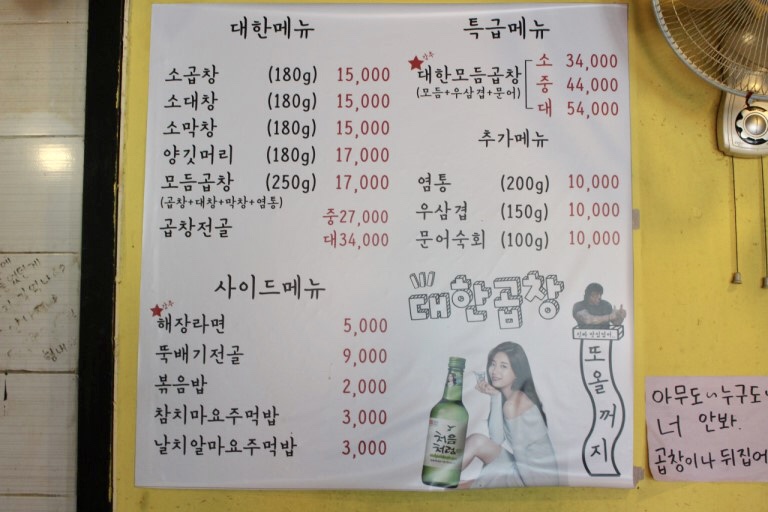 대한메뉴
소곱창 (180g) 15,000
소대창 (180g) 15,000
소막창 (180g) 15,000
양깃머리 (180g) 17,000
모듬곱창 (250g) 17,000
(곱창+대창+막창+염통)
곱창전골 중27,000
대34,000
사이드메뉴
해장라면 5,000
뚝배기전골 9,000
볶음밥 2,000
참치마요주먹밥 3,000
날치알마요주먹밥 3,000
특급메뉴
대한모듬곱창 소 34,000
(모듬+우삼겹+문어) 중 44,000
대 54,000
추가메뉴
염통 (200g) 10,000
우삼겹 (150g) 10,000
문어숙회 (100g) 10,000
대한곱창
또올꺼지
처음처럼
아무도~누구도~
너 안봐.
곱창이나 뒤집어